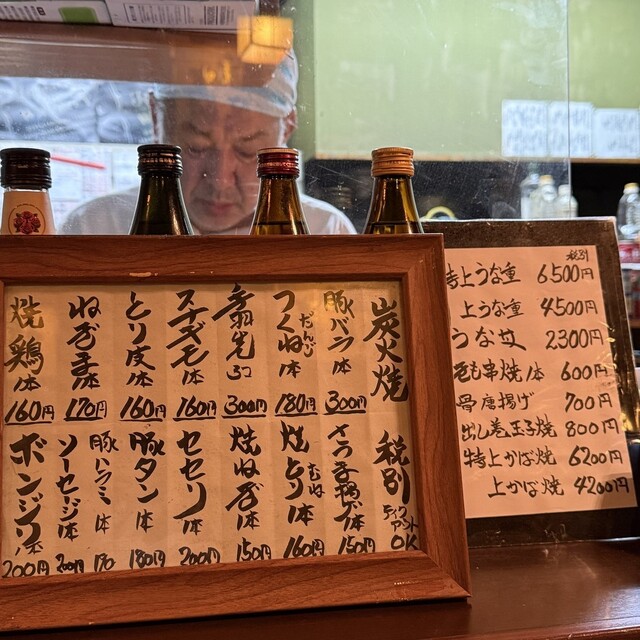 炭火焼
豚バラ1本 300円
つくね だんご 1本 180円
手羽先 300円
スナズモ1本 160円
とり皮1本 160円
ねぎま1本 170円
焼鶏1本 160円
税別
ティクアウトOK
1本 150円
焼とり むね 1本 160円
焼ねぎ1本 150円
セセリ1本 200円
豚タン1本 180円
豚ハラミ1本 170
ソーセージ1本 200円
ボンジリ1本 200円
税別
特上うな重 6500円
上うな重 4500円
うな丼 2300円
きも串焼1本 600円
骨唐揚げ 700円
出し巻玉子焼 800円
特上かば焼 6200円
上かば焼 4200円